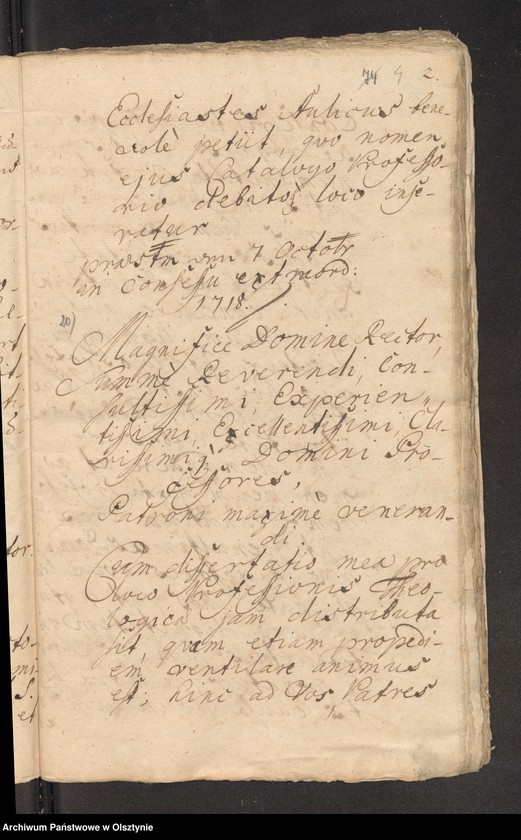 74 9 2.
Ecclesiastes Aulicus bene-
vole petiit, quo nomen
ejus Catalogo Professo-
rio debito loco inse-
ratur
præst̃m den 7 Octobr
in Consessu extraord:
1718.
20)
Magnifice Domine Rector,
Summè Reverendi, Con-
sultissimi, Experien-
tissimi, Excellentissimi, Cla-
rissimiq́; Domini Pro-
fessores,
Patroni maximè veneran-
di.
Cum dissertatio mea pro
loco Professionis Theo-
logicæ jam distributa
sit, quam etiam propedi-
em ventilare animus
est; hinc ad Vos Patres
Archiwum Państwowe w Olsztynie